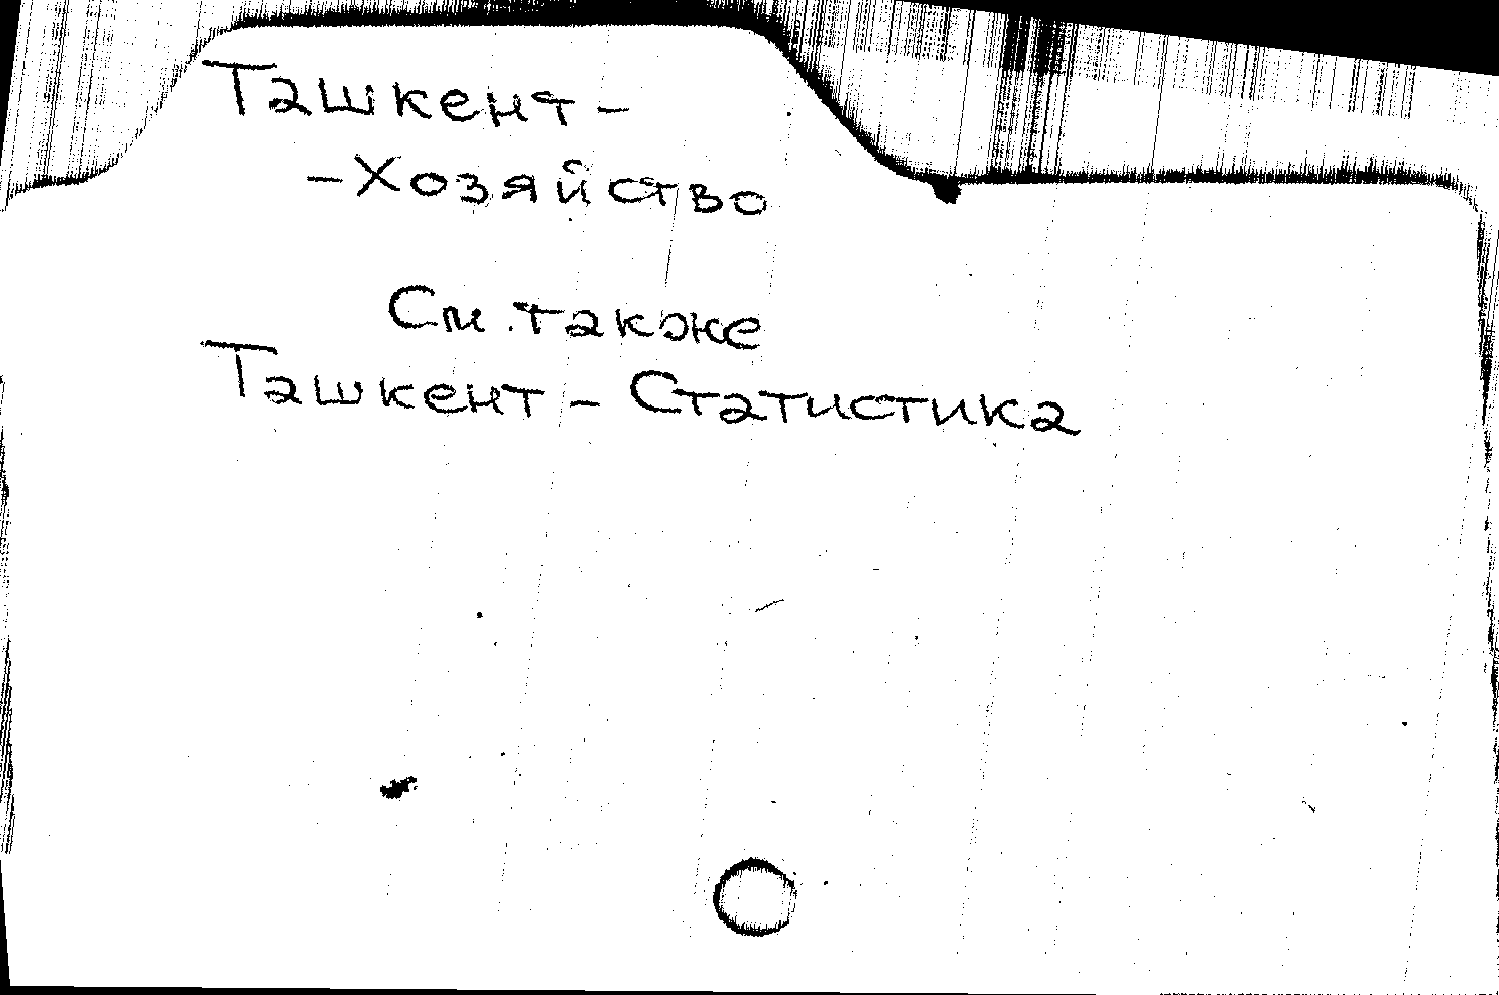 Ташкент -
- Хозяйство
См. также
Ташкент - Статистика